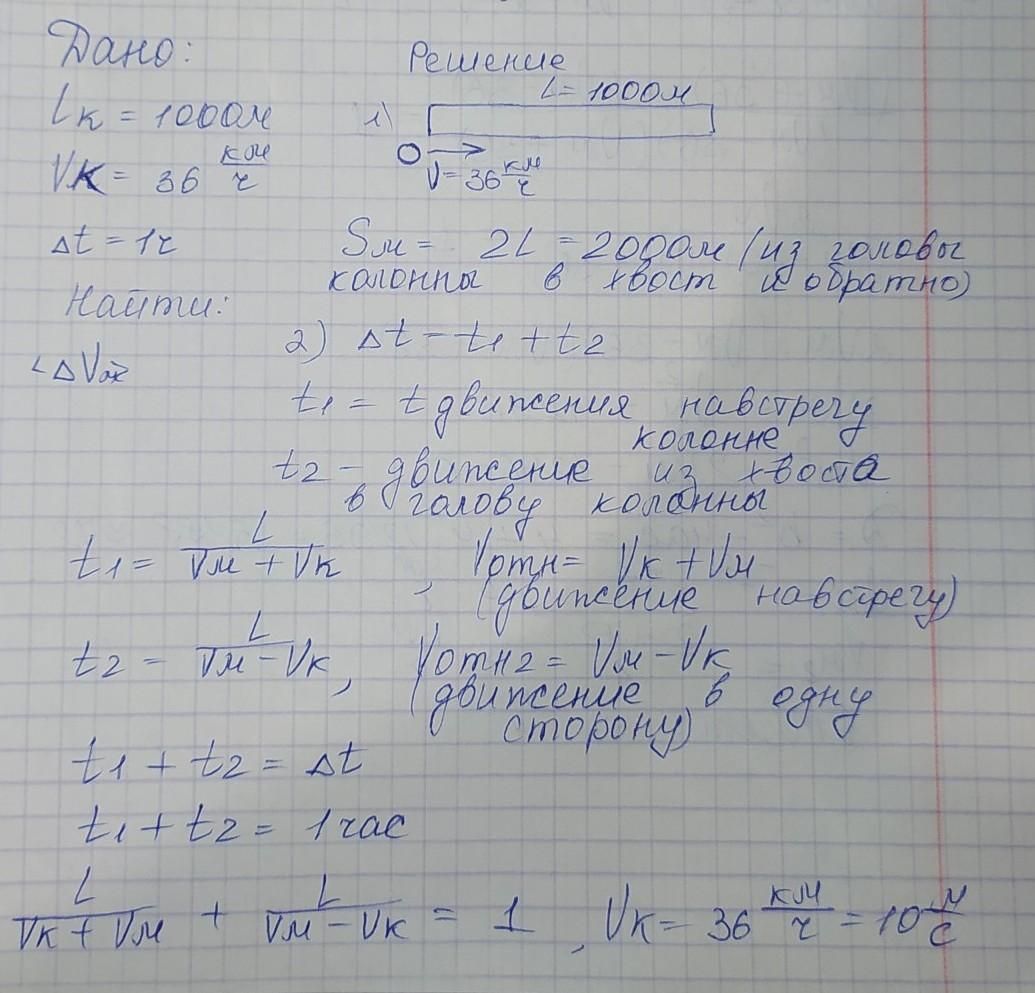 Дано:
Решение
Lк = 1000м
1)
L = 1000м
Vк = 36 км/ч
V = 36 км/ч
Δt = 1ч
Sм = 2L = 2000м (из головы
колонны в хвост и обратно)
Найти:
2) Δt - t1 + t2
t1 = t движения навстречу
колонне
t2 - движение из хвоста
в голову колонны
t1 = L/(Vм + Vк), Vотн = Vк + Vм
(движение навстречу)
t2 = L/(Vм - Vк), Vотн2 = Vм - Vк
(движение в одну
сторону)
t1 + t2 = Δt
t1 + t2 = 1 час
L/(Vк + Vм) + L/(Vм - Vк) = 1, Vк = 36 км/ч = 10 м/с